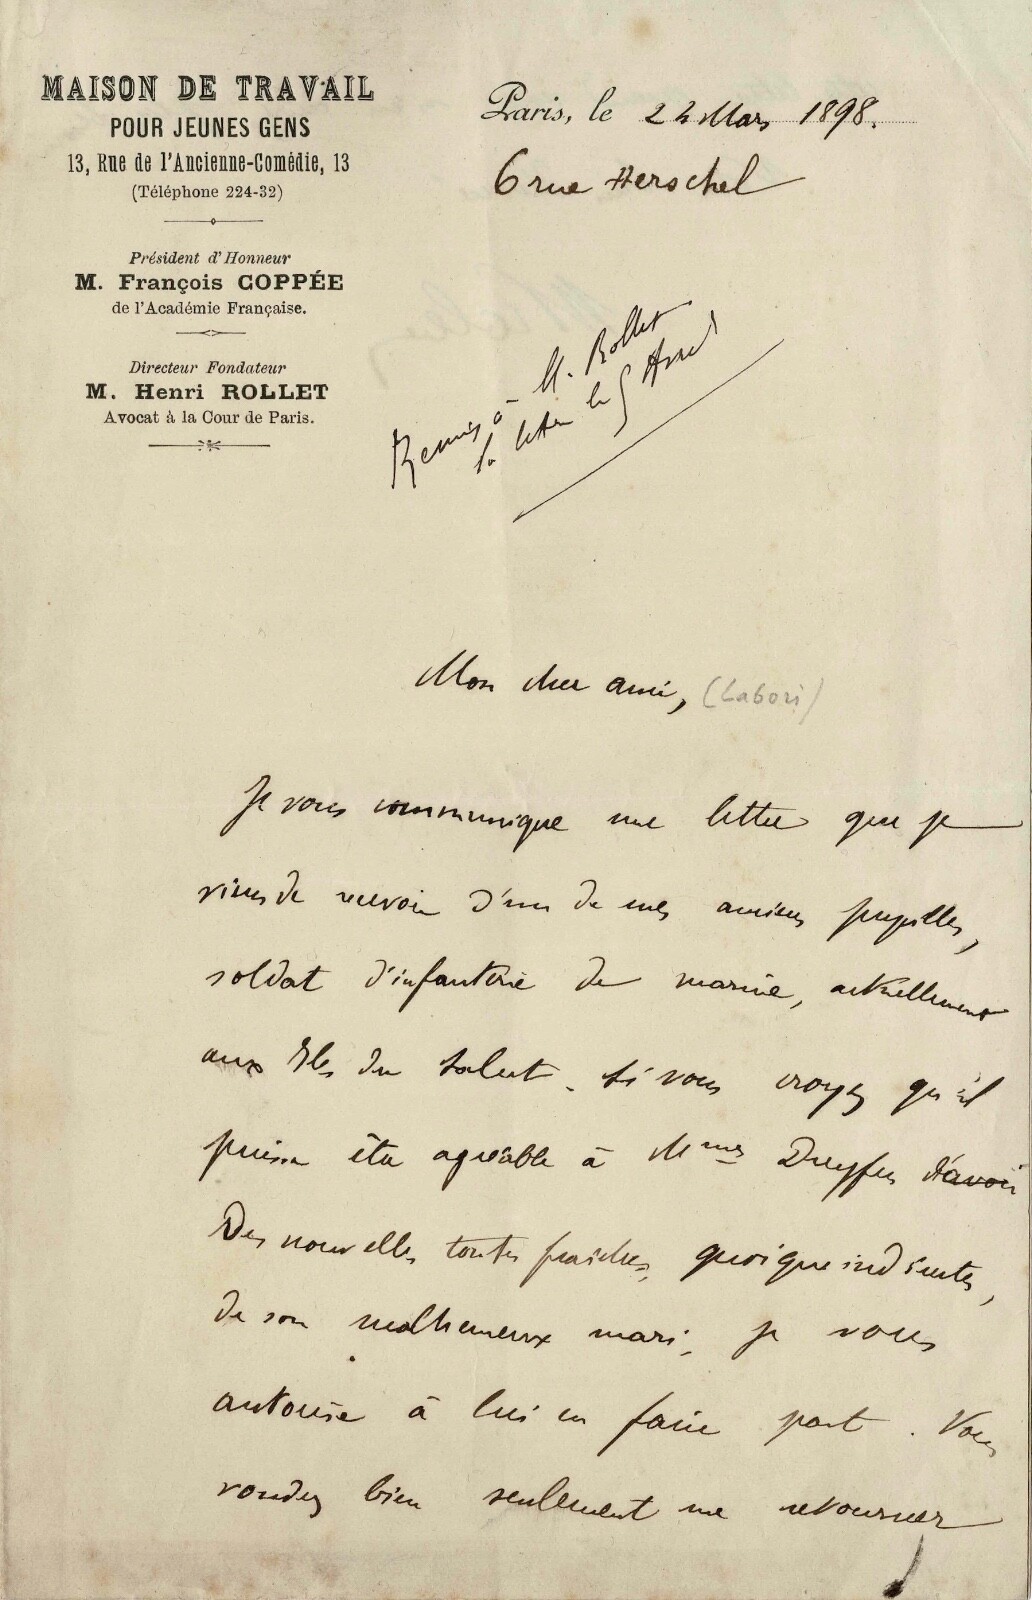 MAISON DE TRAVAIL
POUR JEUNES GENS
13, Rue de l'Ancienne-Comédie, 13
(Téléphone 224-32)
Président d'Honneur
M. François COPPÉE
de l'Académie Française.
Directeur Fondateur
M. Henri ROLLET
Avocat à la Cour de Paris.
Paris, le 24 Mars 1898.
6 rue Herschel
Remis à M. Rollet
la lettre le 5 Avril
Mon cher ami, (Labori)
Je vous communique une lettre que je
viens de recevoir d'un de mes anciens pupilles,
soldat d'infanterie de marine, actuellement
aux Iles du Salut. Si vous croyez qu'il
puisse être agréable à Mme Dreyfus d'avoir
des nouvelles toutes fraîches, quoique indirectes,
de son malheureux mari, je vous
autorise à lui en faire part. Vous
voudrez bien seulement me retourner